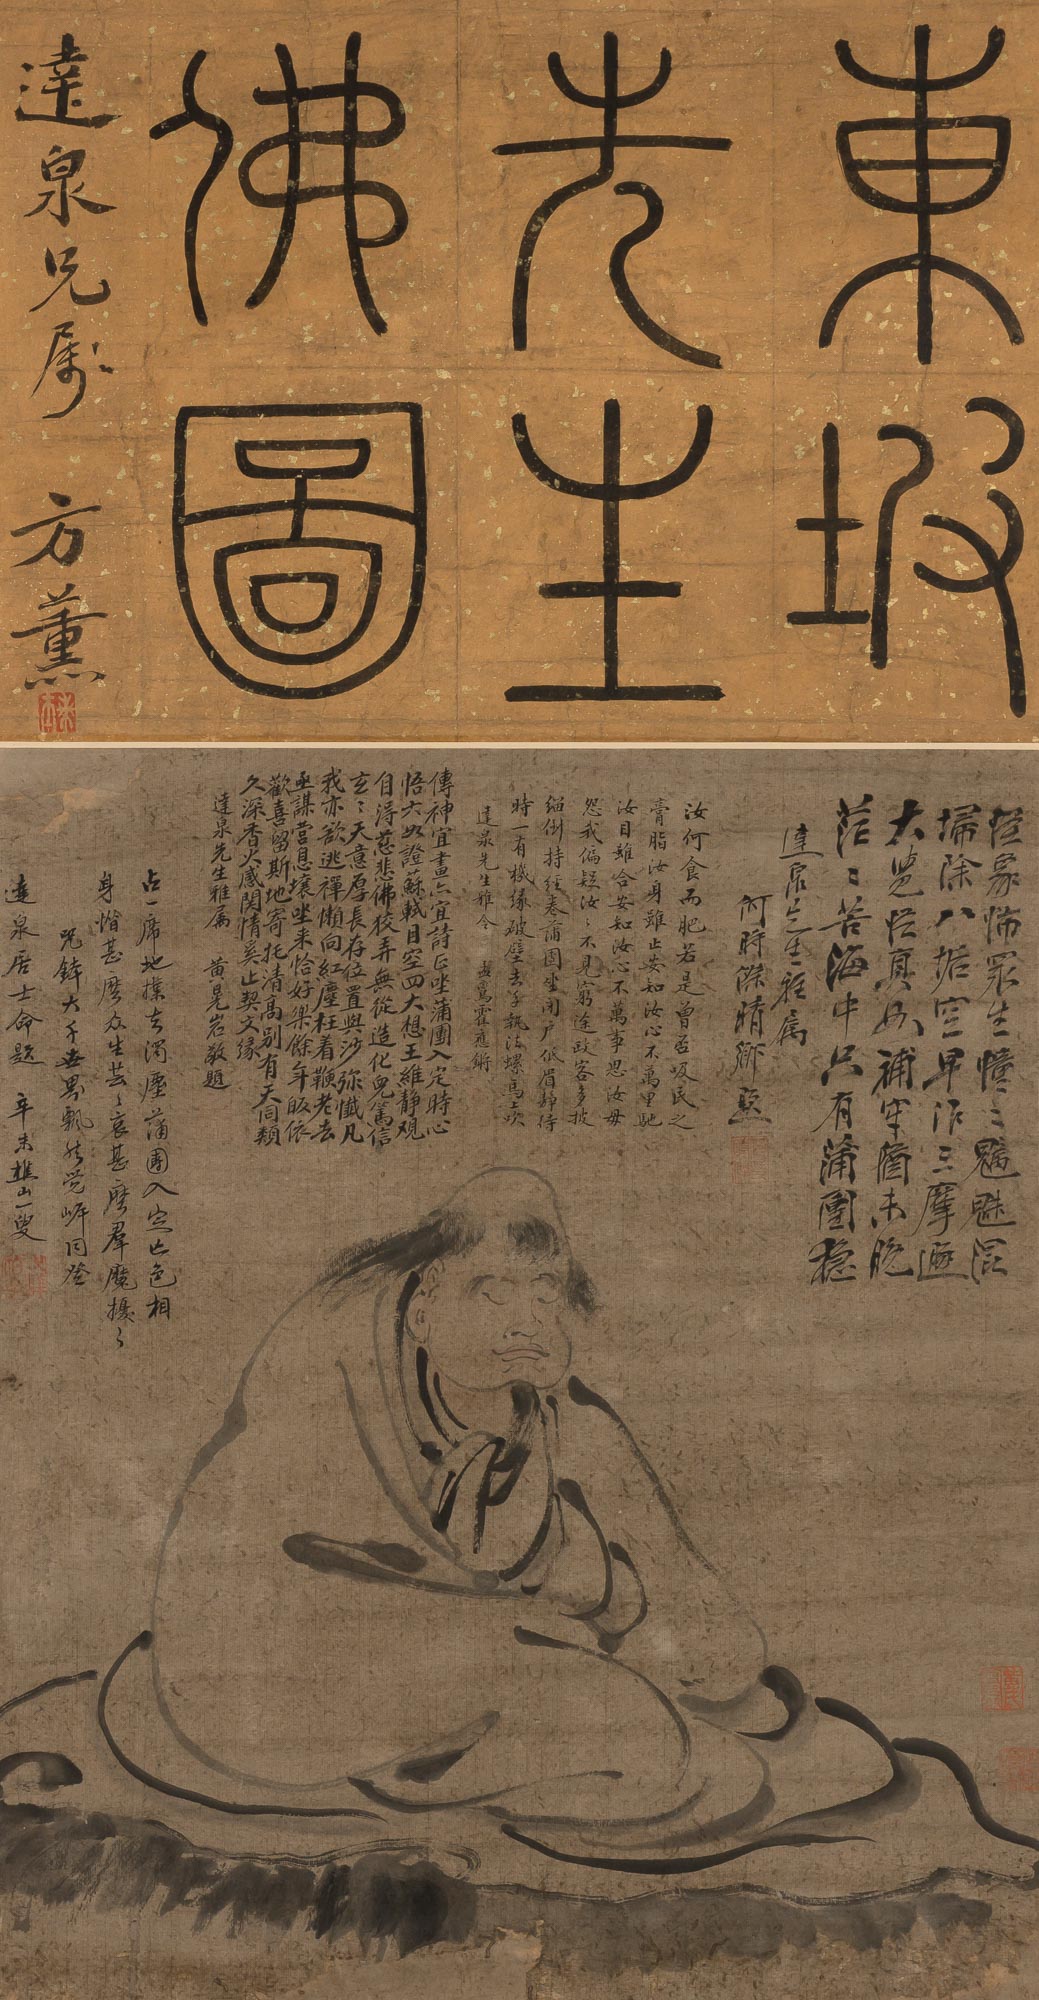 東坡
先生
佛圖
達泉兄屬
方薰
怪象怖眾生憧憧魑魅混
掃除八垢空早作三摩遯
大覺悟真如補牢猶未晚
茫茫苦海中只有蒲團穩
達泉先生雅屬
何時傑晴鄉
汝何食而肥若是曾否吸民之
膏脂汝身雖止安知汝心不萬里馳
汝目雖合安知汝心不萬事思汝毋
怨我偏疑汝汝不見窮途政客多披
緇倒持經卷蒲團坐閉戶低眉靜待
時一有機緣破壁去手執法螺馬上吹
達泉先生雅令
霍應鏘
傳神宜畫亦宜詩正坐蒲團入定時心
悟六如證蘇軾目空四大想王維靜觀
自得慈悲佛狡弄無從造化兒篤信
玄玄天意厚長存位置與沙弥懺凡
我亦欲逃禪懶向紅塵枉着鞭老去
亟謀營息壤坐来恰好樂餘年皈依
歡喜留斯地寄托清高别有天同類
久深香火感関情奚止契文緣
達泉先生雅屬 黄晃岩敬題
占一席地撲去濁塵蒲團入定亡色相
身憎甚麼众生芸芸哀甚麼羣魔擾擾
咒鉢大千世界飘然覺岍同登
達泉居士命題 辛未樵山一叟